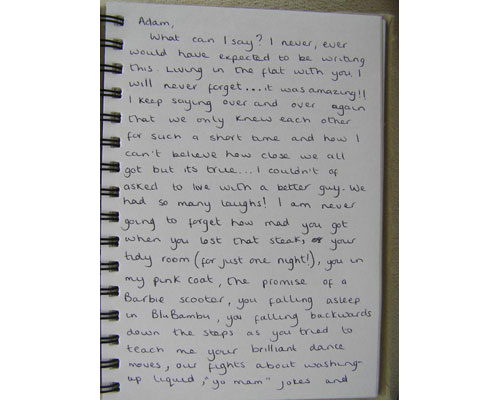 Adam,
What can I say? I never, ever
would have expected to be writing
this. Living in the flat with you, I
will never forget.... it was amazing!!
I keep saying over and over again
that we only knew each other
for such a short time and how I
can't believe how close we all
got but its true... I couldn't of
asked to live with a better guy. We
had so many laughs! I am never
going to forget how mad you got
when you lost that steak, your
tidy room (for just one night!), you in
my punk coat, the promise of a
Barbie scooter, you falling asleep
in BluBambu, you falling backwards
down the steps as you tried to
teach me your brilliant dance
moves, our fights about washing-
up liquid, "yo mam" jokes and